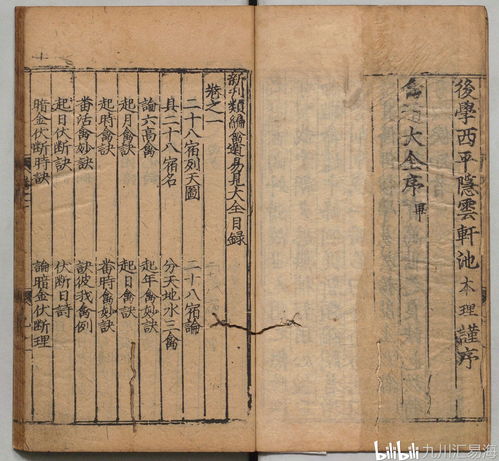 後學西平隱雲軒池本理謹序
禽遁大全序畢
新刊類編禽遁易見大全目錄
卷之一
二十八宿列天圖 二十八宿論
具二十八宿名 分天地水三禽
論六高禽 起年禽妙訣
起月禽訣 起日禽訣
起時禽訣 番時禽妙訣
番活禽妙訣 訣彼我禽例
起日伏斷訣 伏斷日詩
暗金伏斷時訣 論暗金伏斷理
bilibili 九川汇易海